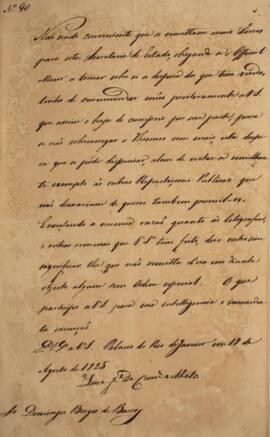 Nº 90
Não sendo conveniente que se remettam mais Livros
para esta Secretaria de Estado, chegando o Official
Maior a tomar sobre si a despeza do que tem vindo,
tenho de recommendar mui positivamente a V. S.
que assim o haja de cumprir por sua parte, para
se não sobrecarregar o Thesouro com mais esta despe
za que se póde dispensar, alem de evitar a similhan
te exemplo às outras Repartiçoens Publicas que
não deixariam de querer tambem permittir.
Existindo a mesma razão quanto às
e outras remessas que V. S. tem feito, devo outrosim
significar lhe que não remetta d'ora em diante
objecto algum sem Ordem especial. O que
participo a V. S. para sua intelligencia e immedia
ta execução.
D.s G.e a V. S. Palacio do Rio de Janeiro em 18 de
Agosto de 1825
Luiz J.e de Carv.o e Mello
Sr. Domingos Borges de Barros